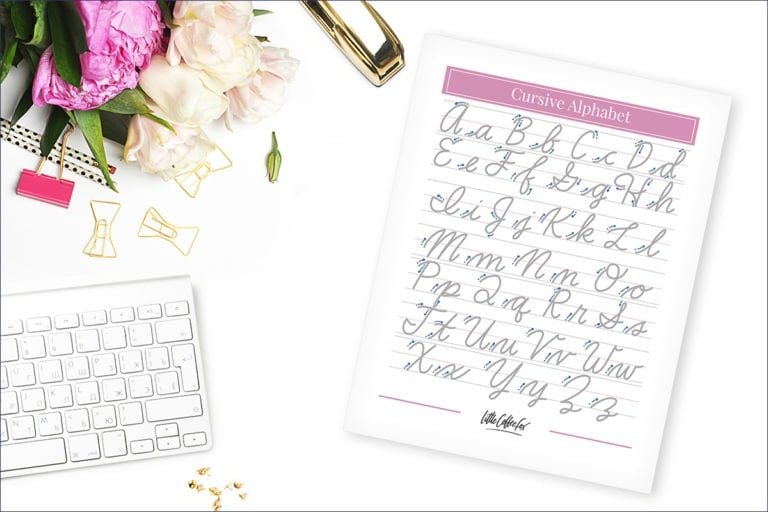 Cursive Alphabet
Aa Bb Cc Dd
Ee Ff Gg Hh
Ii Jj Kk Ll
Mm Nn Oo
Pp Qq Rr Ss
Tt Uu Vv Ww
Xx Yy Zz
Little Coffee Fox